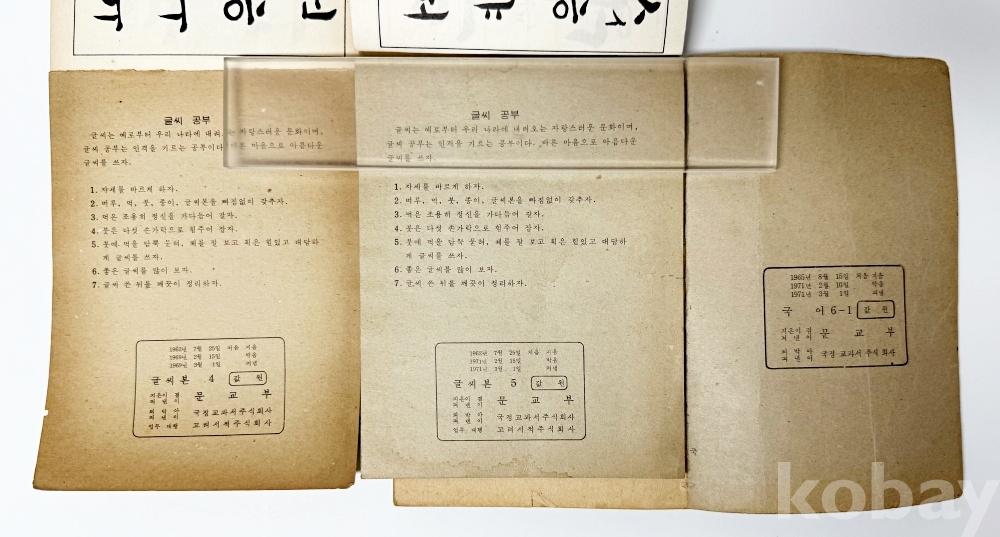 글씨 공부
글씨는 예로부터 우리 나라에 내려오는 자랑스러운 문화이며,
글씨 공부는 인격을 기르는 공부이다. 바른 마음으로 아름다운
글씨를 쓰자.
1. 자세를 바르게 하자.
2. 벼루, 먹, 붓, 종이, 글씨본을 빠짐없이 갖추자.
3. 먹은 조용히 정신을 가다듬어 갈자.
4. 붓은 다섯 손가락으로 힘주어 잡자.
5. 붓에 먹을 담뿍 묻혀, 체를 잘 보고 획은 힘있고 대담하
게 글씨를 쓰자.
6. 좋은 글씨를 많이 보자.
7. 글씨 쓴 뒤를 깨끗이 정리하자.
1962년 7월 25일 처음 지음
1969년 2월 15일 박음
1969년 3월 1일 펴냄
글씨본 4 값 원
지은이 겸 펴낸이 문교부
박아 펴낸이 국정교과서주식회사
업무 대행 고려서적주식회사
글씨 공부
글씨는 예로부터 우리 나라에 내려오는 자랑스러운 문화이며,
글씨 공부는 인격을 기르는 공부이다. 바른 마음으로 아름다운
글씨를 쓰자.
1. 자세를 바르게 하자.
2. 벼루, 먹, 붓, 종이, 글씨본을 빠짐없이 갖추자.
3. 먹은 조용히 정신을 가다듬어 갈자.
4. 붓은 다섯 손가락으로 힘주어 잡자.
5. 붓에 먹을 담뿍 묻혀, 체를 잘 보고 획은 힘있고 대담하
게 글씨를 쓰자.
6. 좋은 글씨를 많이 보자.
7. 글씨 쓴 뒤를 깨끗이 정리하자.
1962년 7월 25일 처음 지음
1971년 2월 15일 박음
1971년 3월 1일 펴냄
글씨본 5 값 원
지은이 겸 펴낸이 문교부
박아 펴낸이 국정교과서주식회사
업무 대행 고려서적주식회사
1965년 8월 15일 처음 지음
1971년 2월 10일 박음
1971년 3월 1일 펴냄
국 어 6-1 값 원
지은이 겸 펴낸이 문교부
박아 펴낸이 국정교과서주식회사
국
kobay